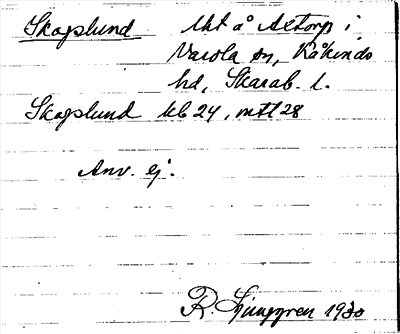 Skoglund Ukt å Altorp i
Varola sn, Kåkinds
hd, Skarab. l.
Skoglund kb 24, mtl 28
Anv. ej.
R. Ljunggren 1930